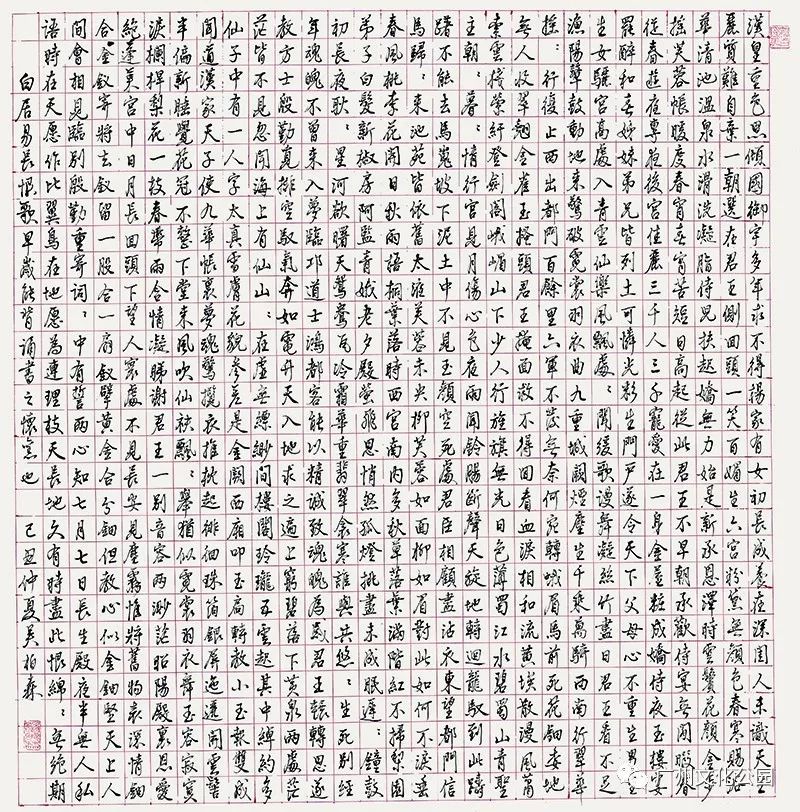 漢皇重色思傾國御宇多年求不得楊家有女初長成養在深閨人未識天生
麗質難自棄一朝選在君王側回頭一笑百媚生六宮粉黛無顏色春寒賜浴
華清池溫泉水滑洗凝脂侍兒扶起嬌無力始是新承恩澤時雲鬢花顏金步
摇芙蓉帳暖度春宵春宵苦短日高起從此君王不早朝承歡侍宴無閒暇春
從春遊夜專夜後宮佳麗三千人三千寵愛在一身金屋粧成嬌侍夜玉樓宴
罷醉和春姊妹弟兄皆列土可憐光彩生門户遂令天下父母心不重生男重
生女驪宮高處入青雲仙樂飄：處：聞緩歌謾舞凝絲竹盡日君王看不足
漁陽鼙鼓動地來驚破霓裳羽衣曲九重城闕煙塵生千乘萬騎西南行翠華
摇：行復止西出都門百餘里六軍不發無奈何宛轉蛾眉馬前死花鈿委地
無人收翠翹金雀玉搔頭君王掩面救不得回看血淚相和流黃埃散漫風蕭
索雲棧縈紆登劍閣峨嵋山下少人行旌旗無光日色薄蜀江水碧蜀山青聖
主朝：暮：情行宮見月傷心色夜雨聞鈴腸斷聲天旋地轉迴龍馭到此躊
躇不能去馬嵬坡下泥土中不見玉顏空死處君臣相顧盡沾衣東望都門信
馬歸：來池苑皆依舊太液芙蓉未央柳芙蓉如面柳如眉對此如何不淚垂
春風桃李花開日秋雨梧桐葉落時西宮南內多秋草落葉滿階紅不掃梨園
弟子白髮新椒房阿監青娥老夕殿螢飛思悄然孤燈挑盡未成眠遲：鐘鼓
初長夜耿：星河欲曙天鴛鴦瓦冷霜華重翡翠衾寒誰與共悠：生死別經
年魂魄不曾來入夢臨邛道士鴻都客能以精誠致魂魄為感君王輾轉思遂
教方士殷勤覓排空馭氣奔如電升天入地求之遍上窮碧落下黃泉兩處茫
茫皆不見忽聞海上有仙山：在虛無縹緲間樓閣玲瓏五雲起其中綽約多
仙子中有一人字太真雪膚花貌參差是金闕西廂叩玉扃轉教小玉報雙成
聞道漢家天子使九華帳裏夢魂驚攬衣推枕起徘徊珠箔銀屏迤邐開雲鬢
半偏新睡覺花冠不整下堂來風吹仙袂飄：舉猶似霓裳羽衣舞玉容寂寞
淚攔桿梨花一枝春帶雨含情凝睇謝君王一別音容兩渺茫昭陽殿裏恩愛
絕蓬萊宮中日月長回頭下望人寰處不見長安見塵霧惟將舊物表深情鈿
合金釵寄將去釵留一股合一扇釵擘黃金合分鈿但教心似金鈿堅天上人
間會相見臨別殷勤重寄詞：中有誓兩心知七月七日長生殿夜半無人私
語時在天願作比翼鳥在地願為連理枝天長地久有時盡此恨綿：無絕期
白居易長恨歌早歲能背誦書之懷念也 己丑仲夏吴柏森
广州文化公园